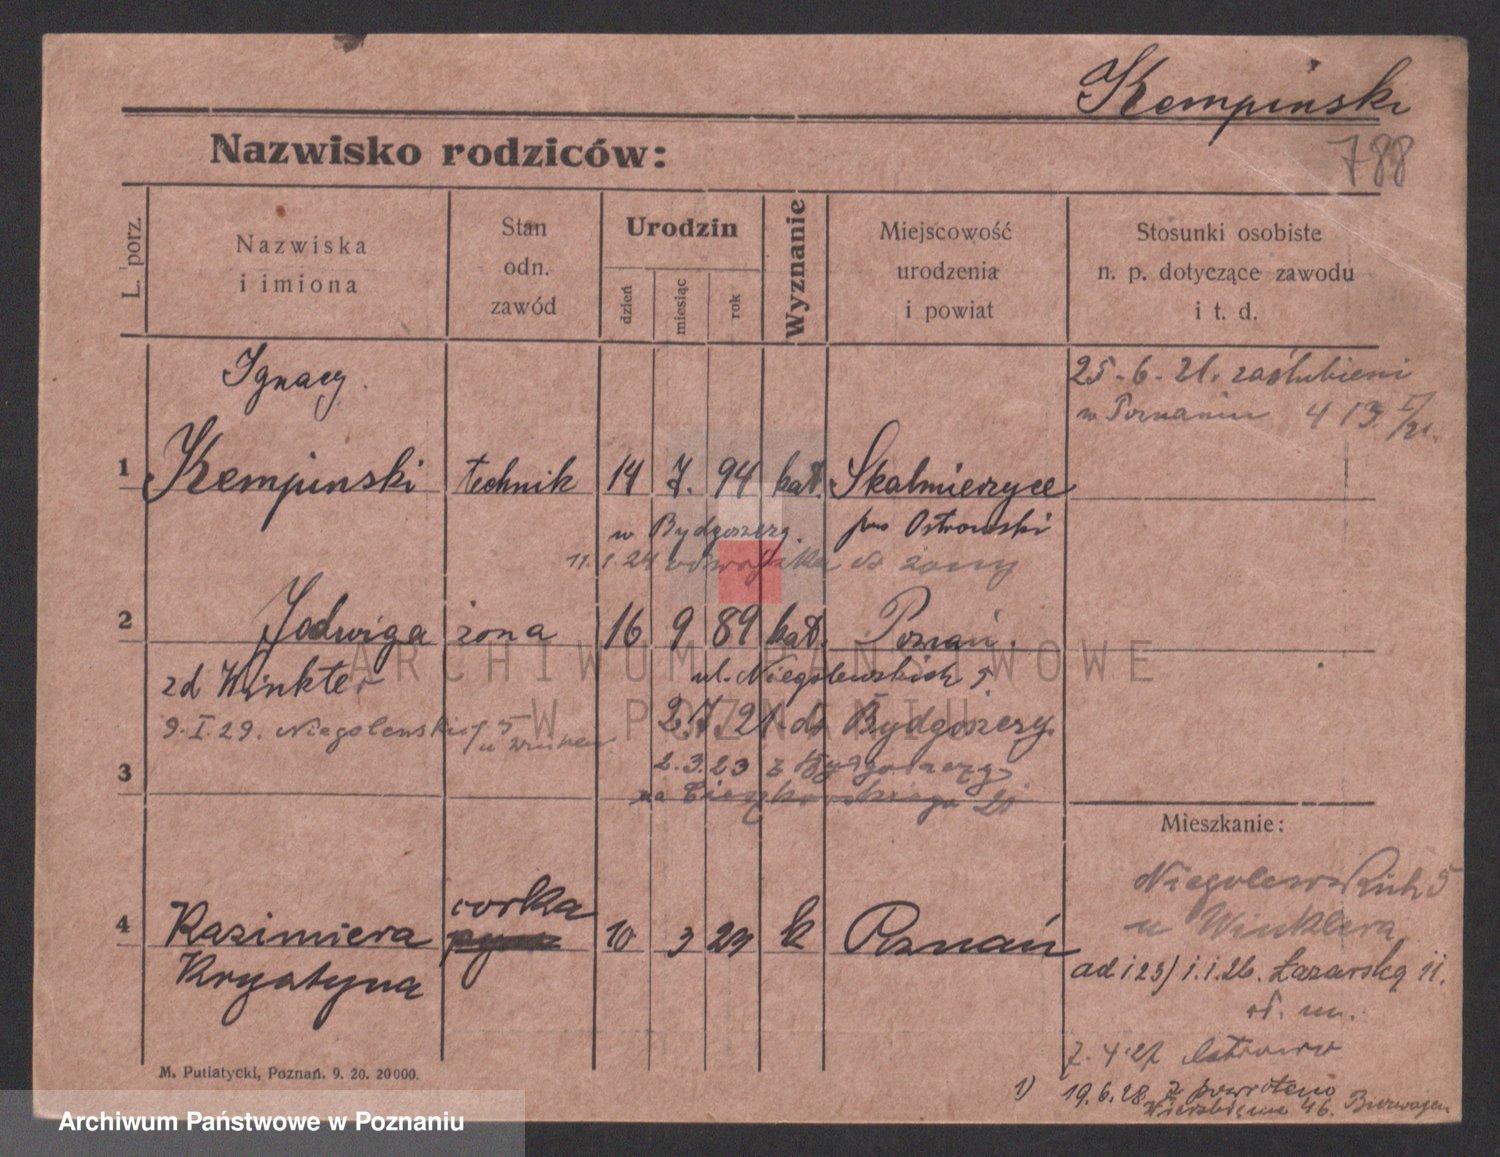 Kempinski
788
Nazwisko rodziców:
L. porz.
Nazwiska
i imiona
Stan
odn.
zawód
Urodzin
dzień
miesiąc
rok
Wyznanie
Miejscowość
urodzenia
i powiat
Stosunki osobiste
n. p. dotyczące zawodu
i t. d.
25-6-21. zaślubieni
w Poznaniu
Ignacy
1 Kempinski technik 14 7. 94 kat. Skalmierzyce
w Bydgoszczy. pow Ostrowski
11.1.24 do żony
2 Jadwiga żona 16 9 89 kat. Poznań.
zd Winkler ul. Niegolewskich 5.
9.I.29. Niegolewskich 5 do Bydgoszczy
2.3.23 z Bydgoszczy
3
na Cieszkowskiego
Mieszkanie:
Niegolewskich 5
u Winklera
córka
4 Kazimiera 10 3 23 k Poznań
Krystyna
ad 1 23/ 1.1.26. Łazarska 11.
7.4.27 Ostrowo
1) 19.6.28. z powrotem
46.
M. Putiatycki, Poznań. 9. 20. 20000.
ARCHIWUM PAŃSTWOWE
W POZNANIU
Archiwum Państwowe w Poznaniu